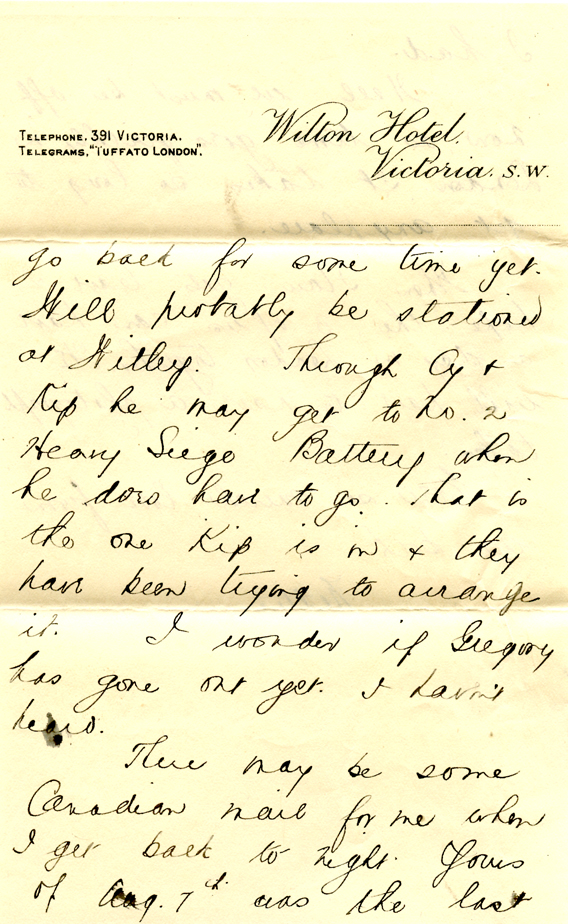 TELEPHONE. 391 VICTORIA.
TELEGRAMS, "TUFFATO LONDON".
Wilton Hotel.
Victoria. S.W.
go back for some time yet.
Will probably be stationed
at Witley. Through Cy &
Kip he may get to No. 2
Heavy Siege Battery when
he does have to go. That is
the one Kip is in & they
have been trying to arrange
it. I wonder if Gregory
has gone out yet. I havn't
heard.
There may be some
Canadian mail for me when
I get back to night. Yours
of Aug. 7th. was the last